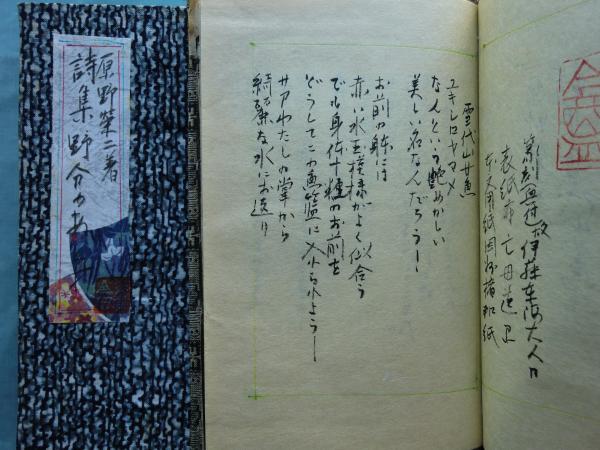 表紙布 亡母遺品
本文用紙因州楮和紙
雪代山女魚
ユキシロヤマメ
なんという艶めかしい
美しい名なんだろうー
お前の躰には
赤い水玉模様がよく似合う
でも身体十糎のお前を
どうしてこの魚籃に入れられようー
サアわたしの掌から
綺麗な水にお還り
原野栄二著
詩集 野分のあ